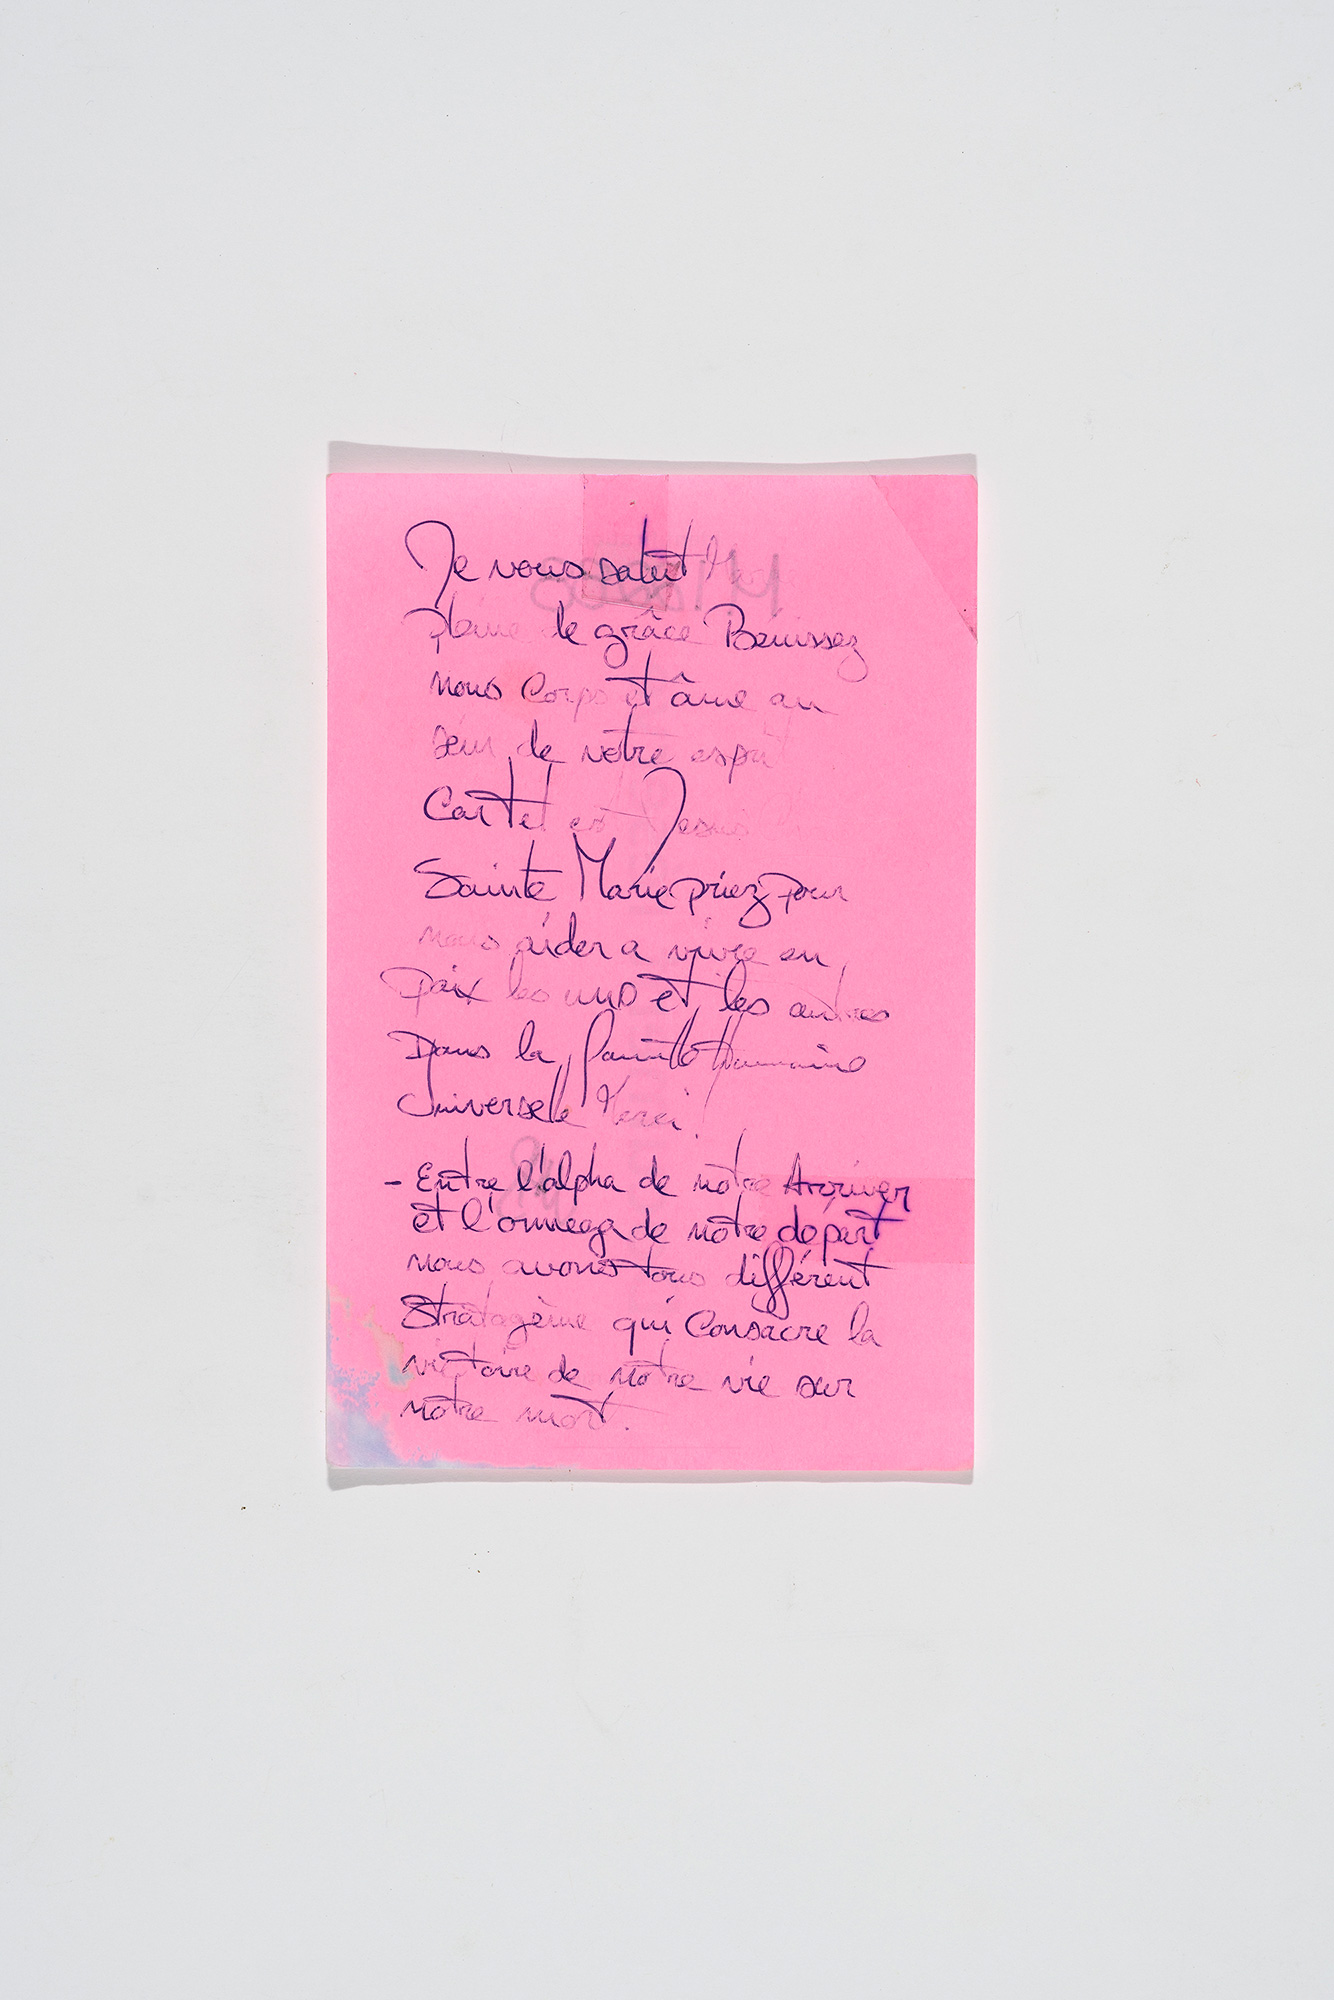 Je vous salut Marie
pleine de grâce Benissez
nous Corps et âme au
sein de votre esprit
Car tel est Jesus
Sainte Marie priez pour
nous aider a vivre en
paix les uns et les autres
Dans la famille Humaine
Universele Merci!
- Entre l'alpha de notre Arriver
et l'omega de notre depart
nous avons tous différent
Stratagème qui Consacre la
victoire de notre vie sur
notre mort.